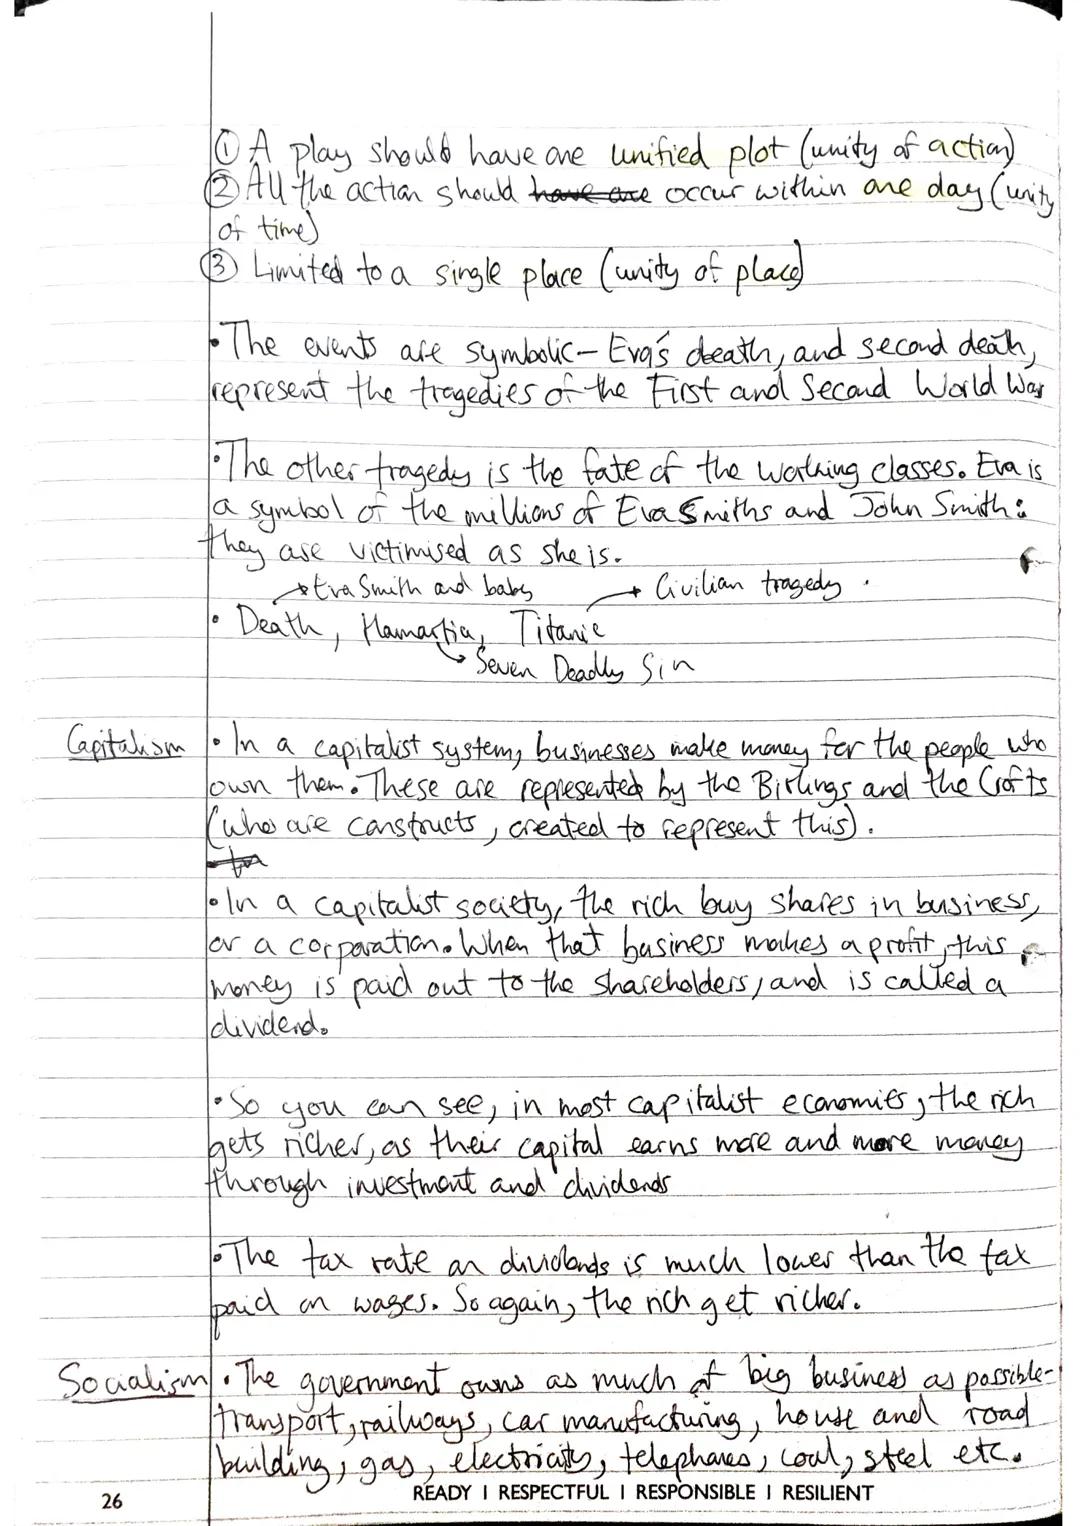 ① A play should have one unified plot (unity of action)
② All the action should have one occur within one day (unity
of time)
③ Limited to a single place (unity of place)
• The events are symbolic - Eva's death, and second death,
represent the tragedies of the First and Second World War
• The other tragedy is the fate of the working classes. Eva is
a symbol of the millions of Eva Smiths and John Smith:
they are victimised as she is.
→ Eva Smith and baby → Civilian tragedy.
• Death, Hamartia, Titanic
→ Seven Deadly Sin
Capitalism • In a capitalist system, businesses make money for the people who
own them. These are represented by the Birlings and the Crofts
(who are constructs, created to represent this).
• In a capitalist society, the rich buy shares in business,
or a corporation. When that business makes a profit, this
money is paid out to the shareholders, and is called a
dividend.
• So you can see, in most capitalist economies, the rich
gets richer, as their capital earns more and more money
through investment and dividends
• The tax rate on dividends is much lower than the tax
paid on wages. So again, the rich get richer.
Socialism • The government owns as much of big business as possible-
transport, railways, car manufacturing, house and road
building, gas, electricity, telephones, coal, steel etc.
26 READY I RESPECTFUL I RESPONSIBLE I RESILIENT